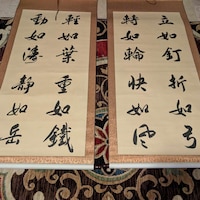 立如釘折如弓
轉如輪快如风
輕如葉重如鐵
動如濤靜如岳